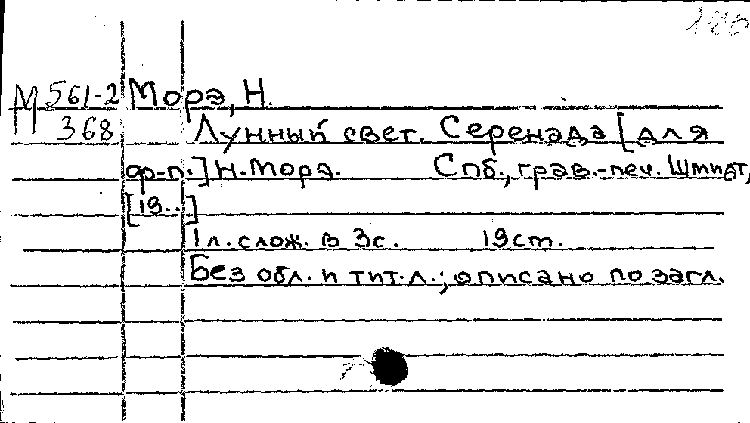 М 561-2
368
Морэ, Н.
Лунный свет. Серенада [для
ф-п.] Н. Морэ. Спб., грав.-печ. Шмидт,
[19..]
1 л. слож. в 3с. 19ст.
Без обл. и тит. л.; описано по загл.